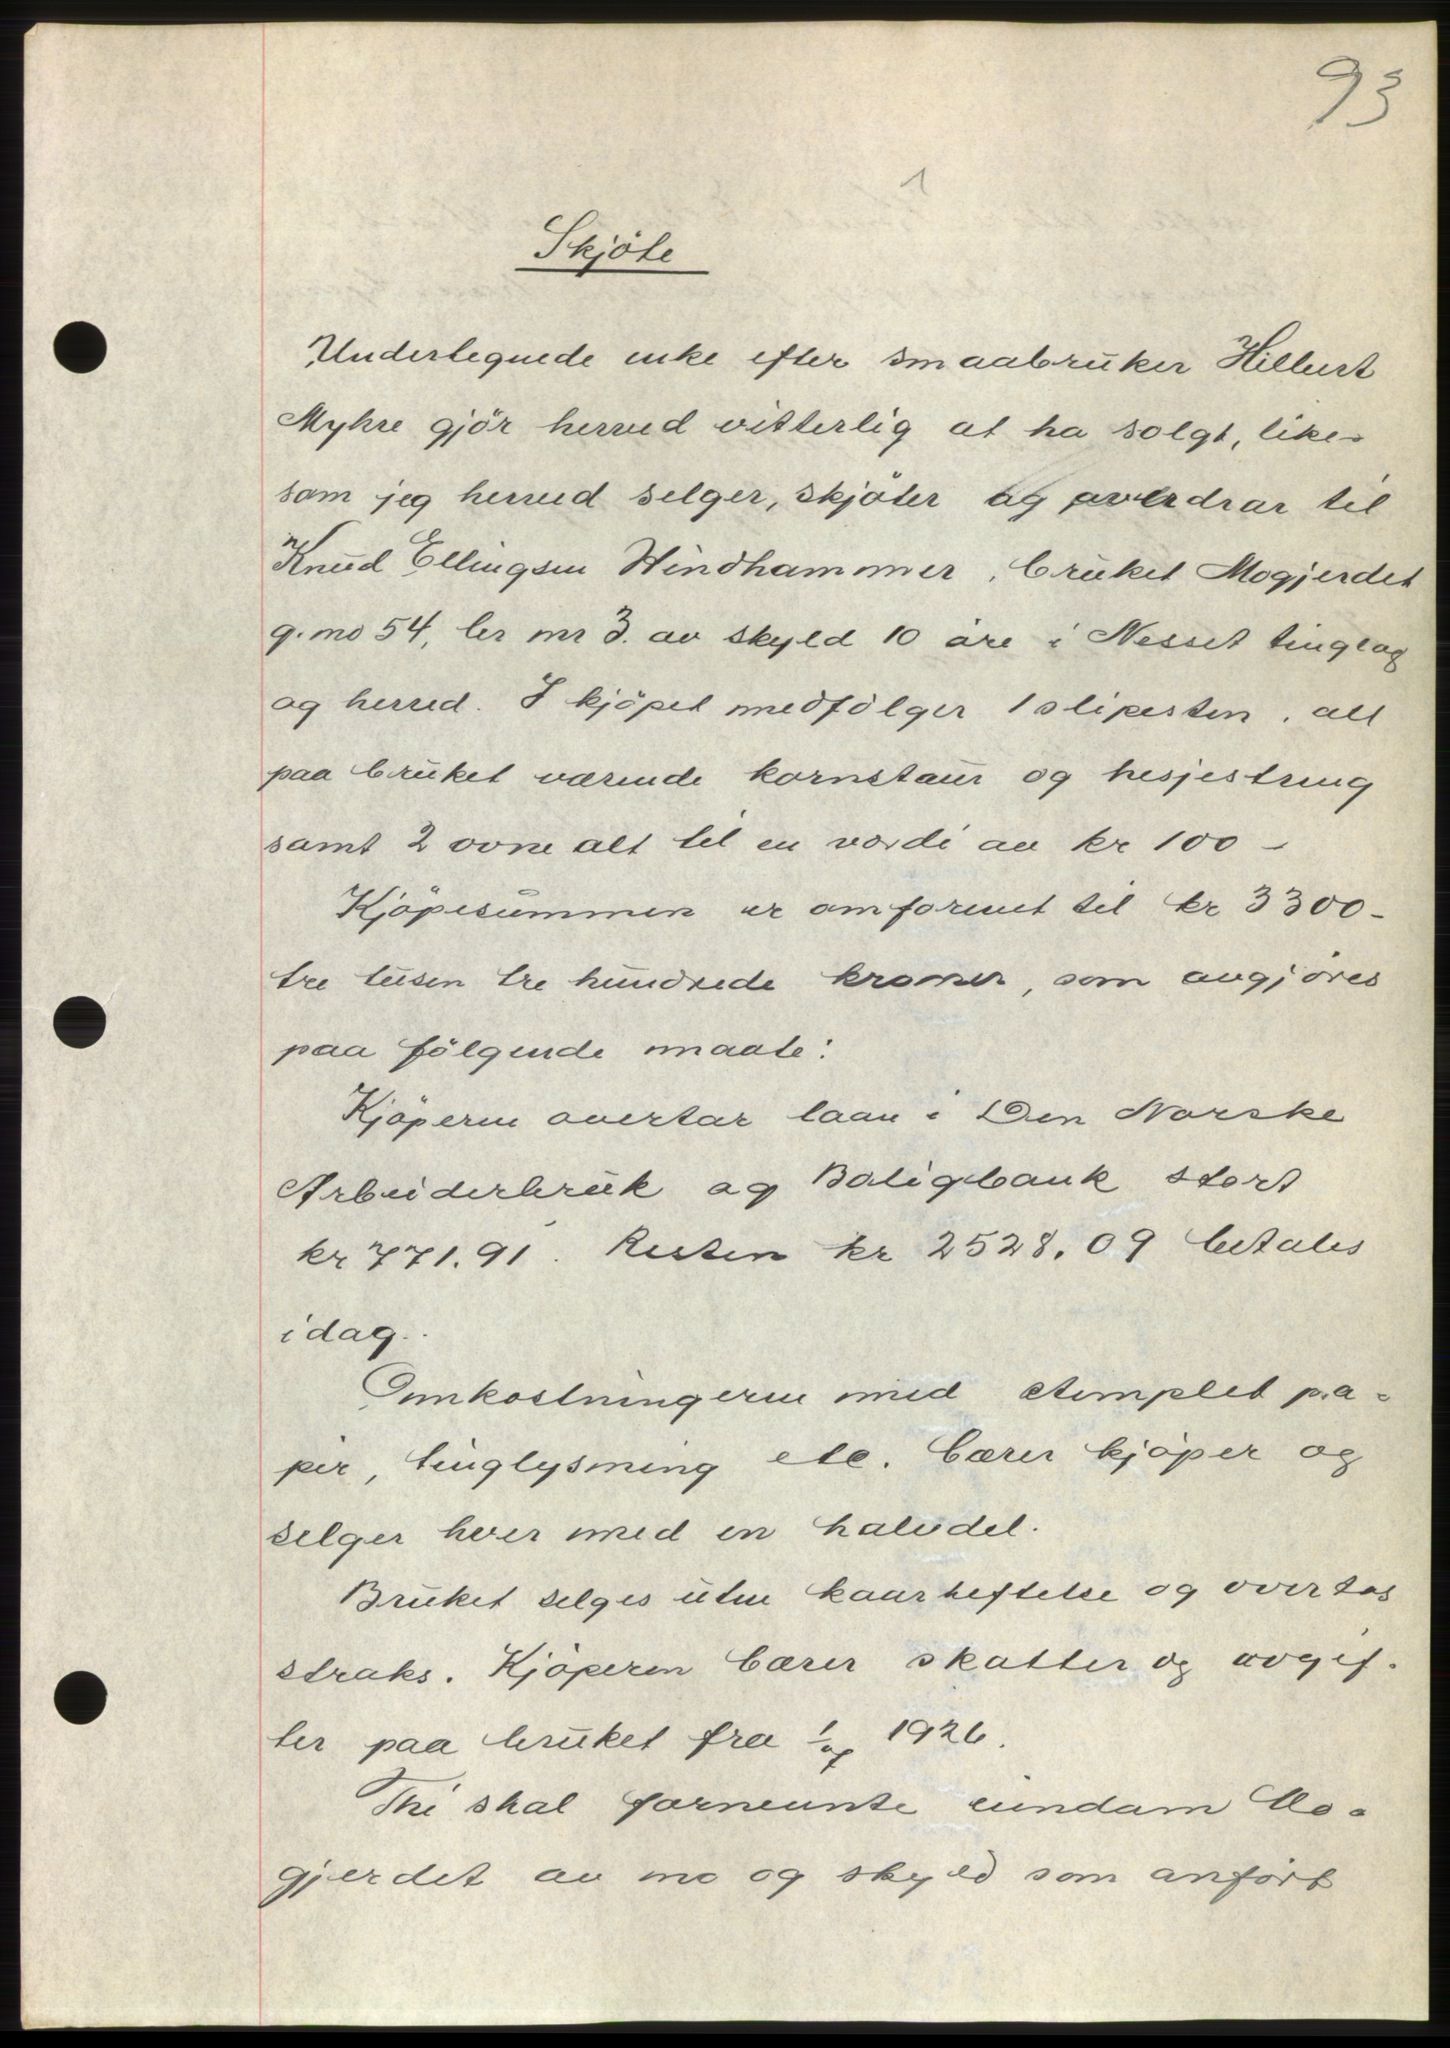 93
1
Skjöte
Undertegnede enke efter smaabruker Hilbert
Myhre gjör herved vitterlig at ha solgt, like-
som jeg herved selger, skjöter og overdrar til
Knud Ellingsen Windhammer, bruket Mogjerdet
g. no 54, br nr 3. av skyld 10 øre i Nesset tinglag
og herred. I kjöpet medfölger 1 slipesten, alt
paa bruket værende kornstaur og hesjestreng
samt 2 ovne alt til en verdi av kr 100 -
Kjöpesummen er omforenet til kr 3300-
tre tusen tre hundrede kroner, som avgjöres
paa fölgende maate:
Kjöperen overtar laan i Den Norske
Arbeiderbruk og Boligbank stort
kr 771.91. Resten kr 2528.09 betales
idag.
Omkostningerne med stemplet pa-
pir, tinglysning etc. bærer kjöper og
selger hver med en halvdel.
Bruket selges uten kaarheftelse og overtas
straks. Kjöperen bærer skatter og avgif-
ter paa bruket fra 1/ 1926.
Thi skal fornevnte eiendom Mo-
gjerdet av no og skyld som anfört